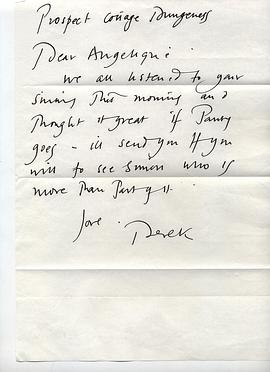 Prospect Cottage Dungeness
Dear Angelique
we all listened to your
this morning and
thought it great if
goes - ill send you
to see Simon who is
more than
love.
Derek